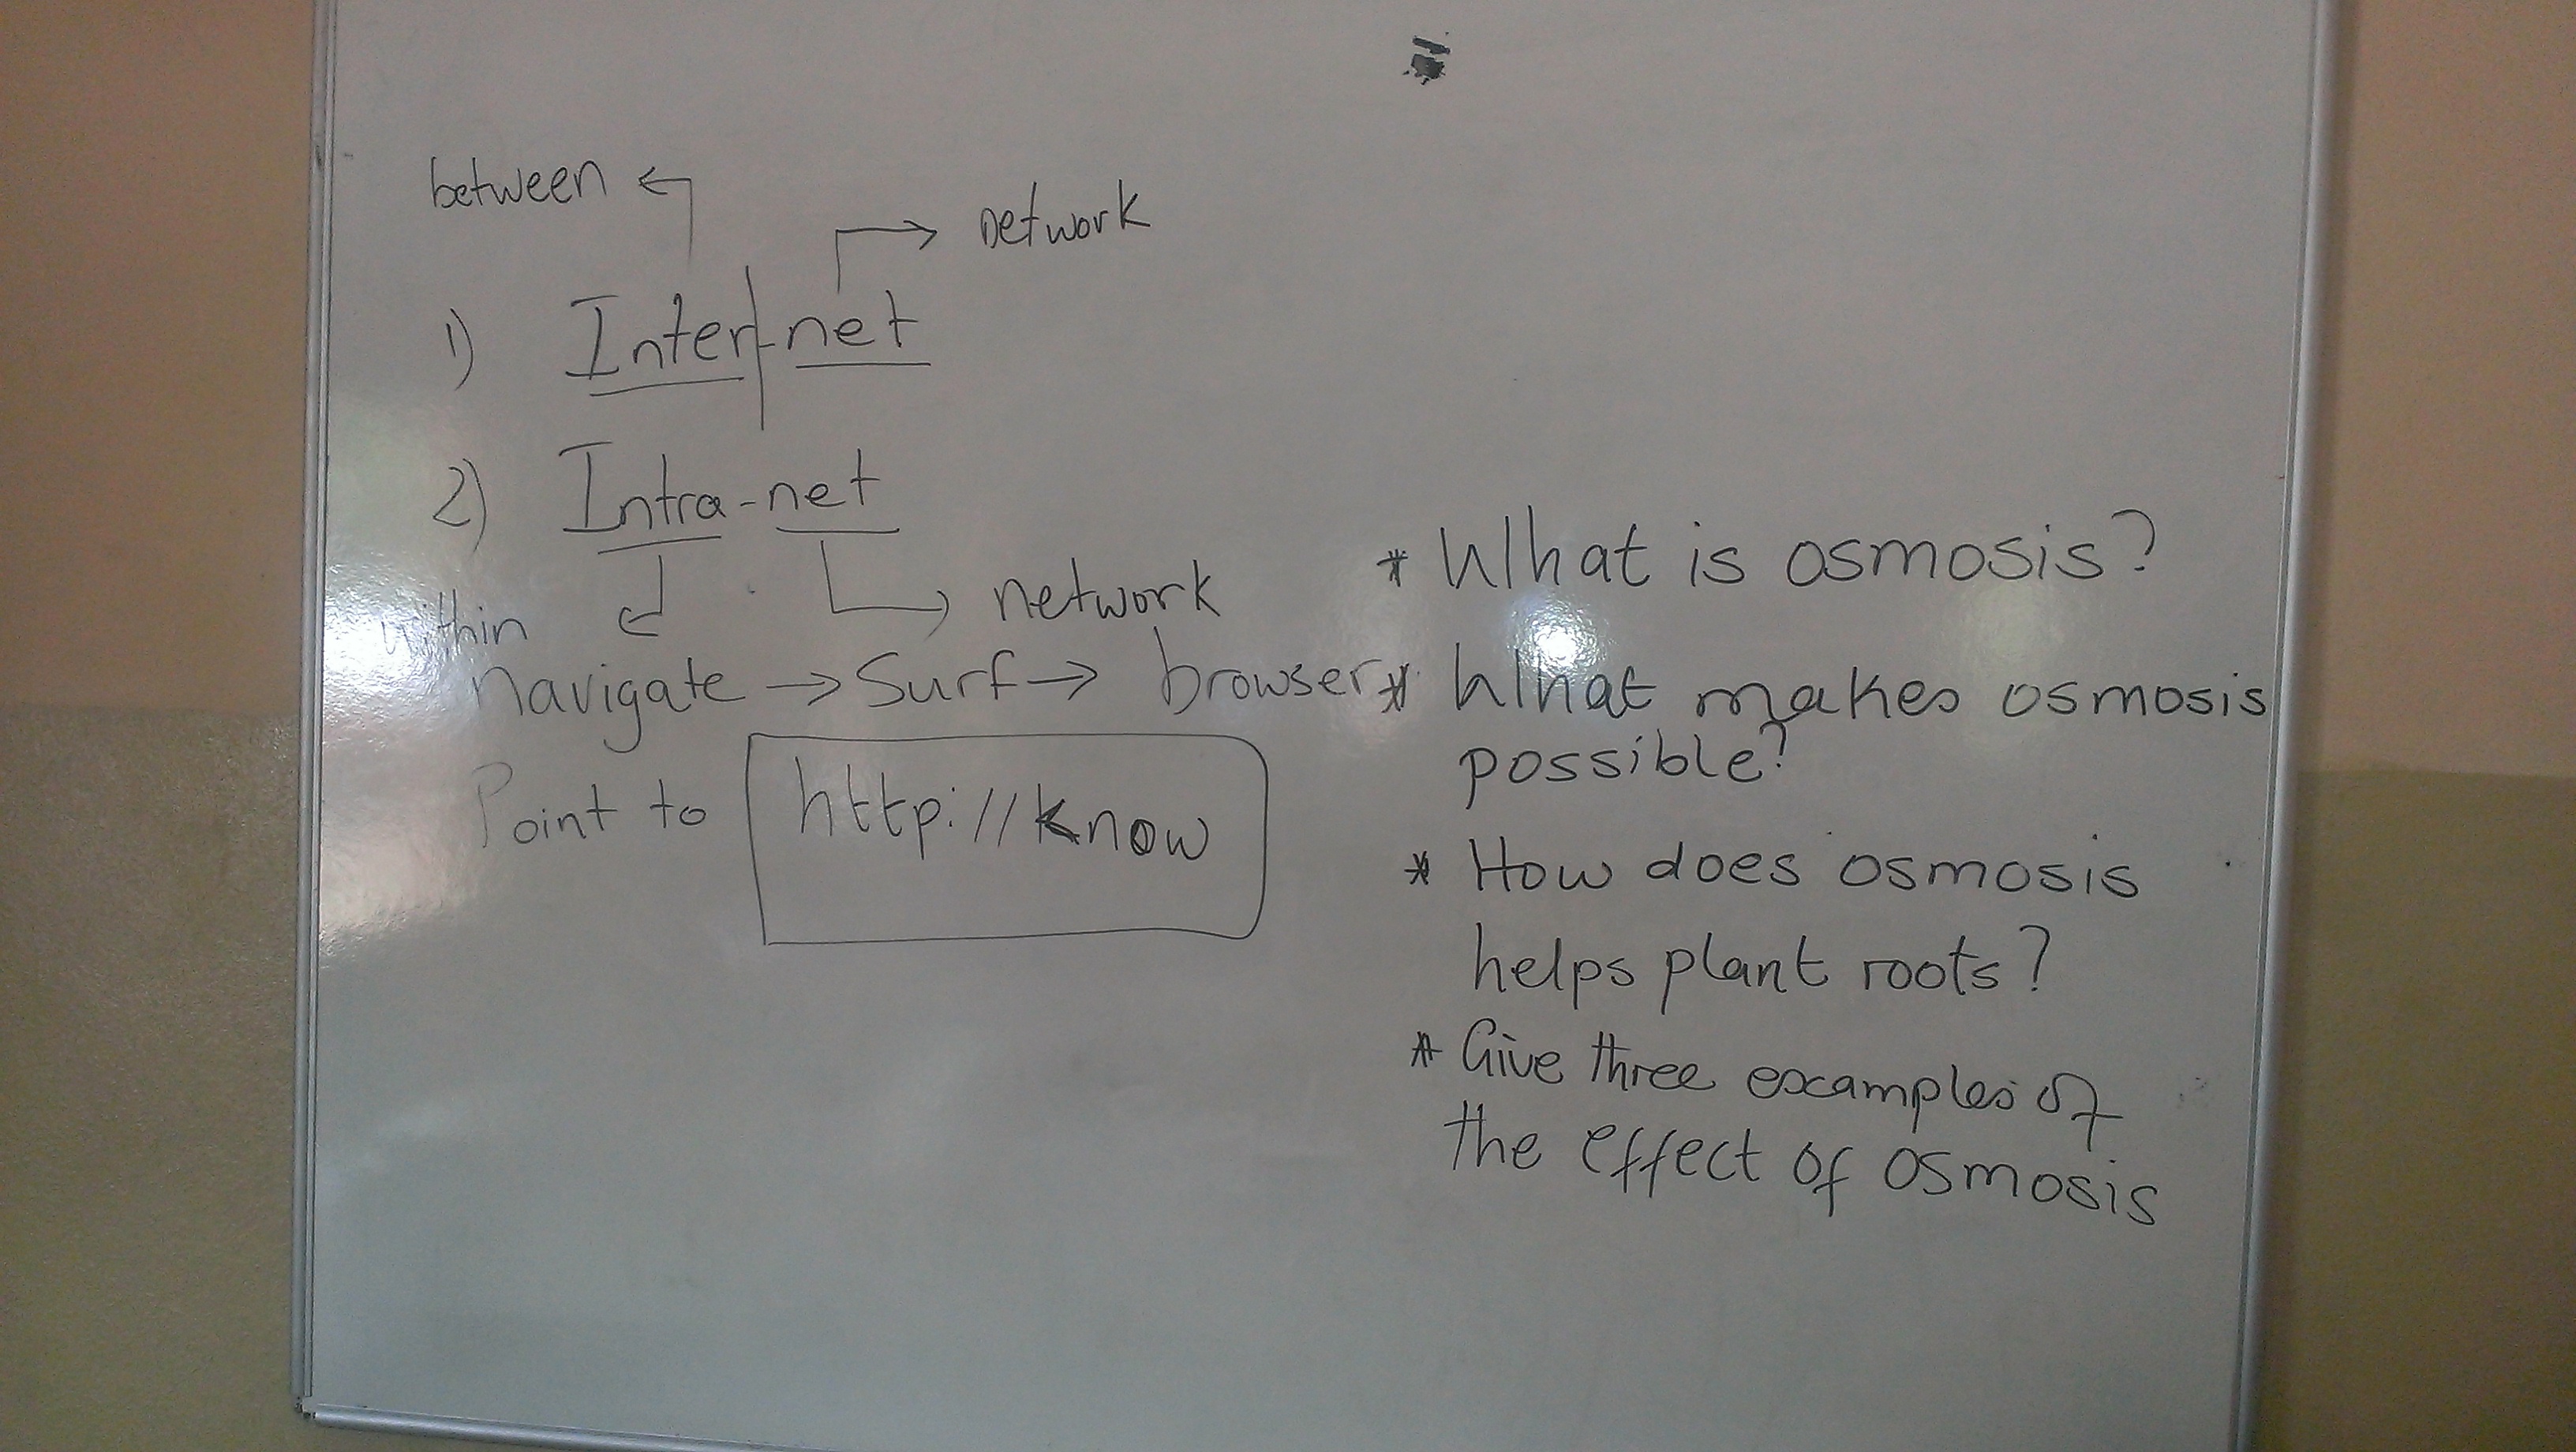 between ←
→ network
1) Inter-net
2) Intra-net
within ← → network
navigate → Surf → browser
Point to http://know
* What is osmosis?
* What makes osmosis
possible?
* How does osmosis
helps plant roots?
* Give three examples of
the effect of osmosis